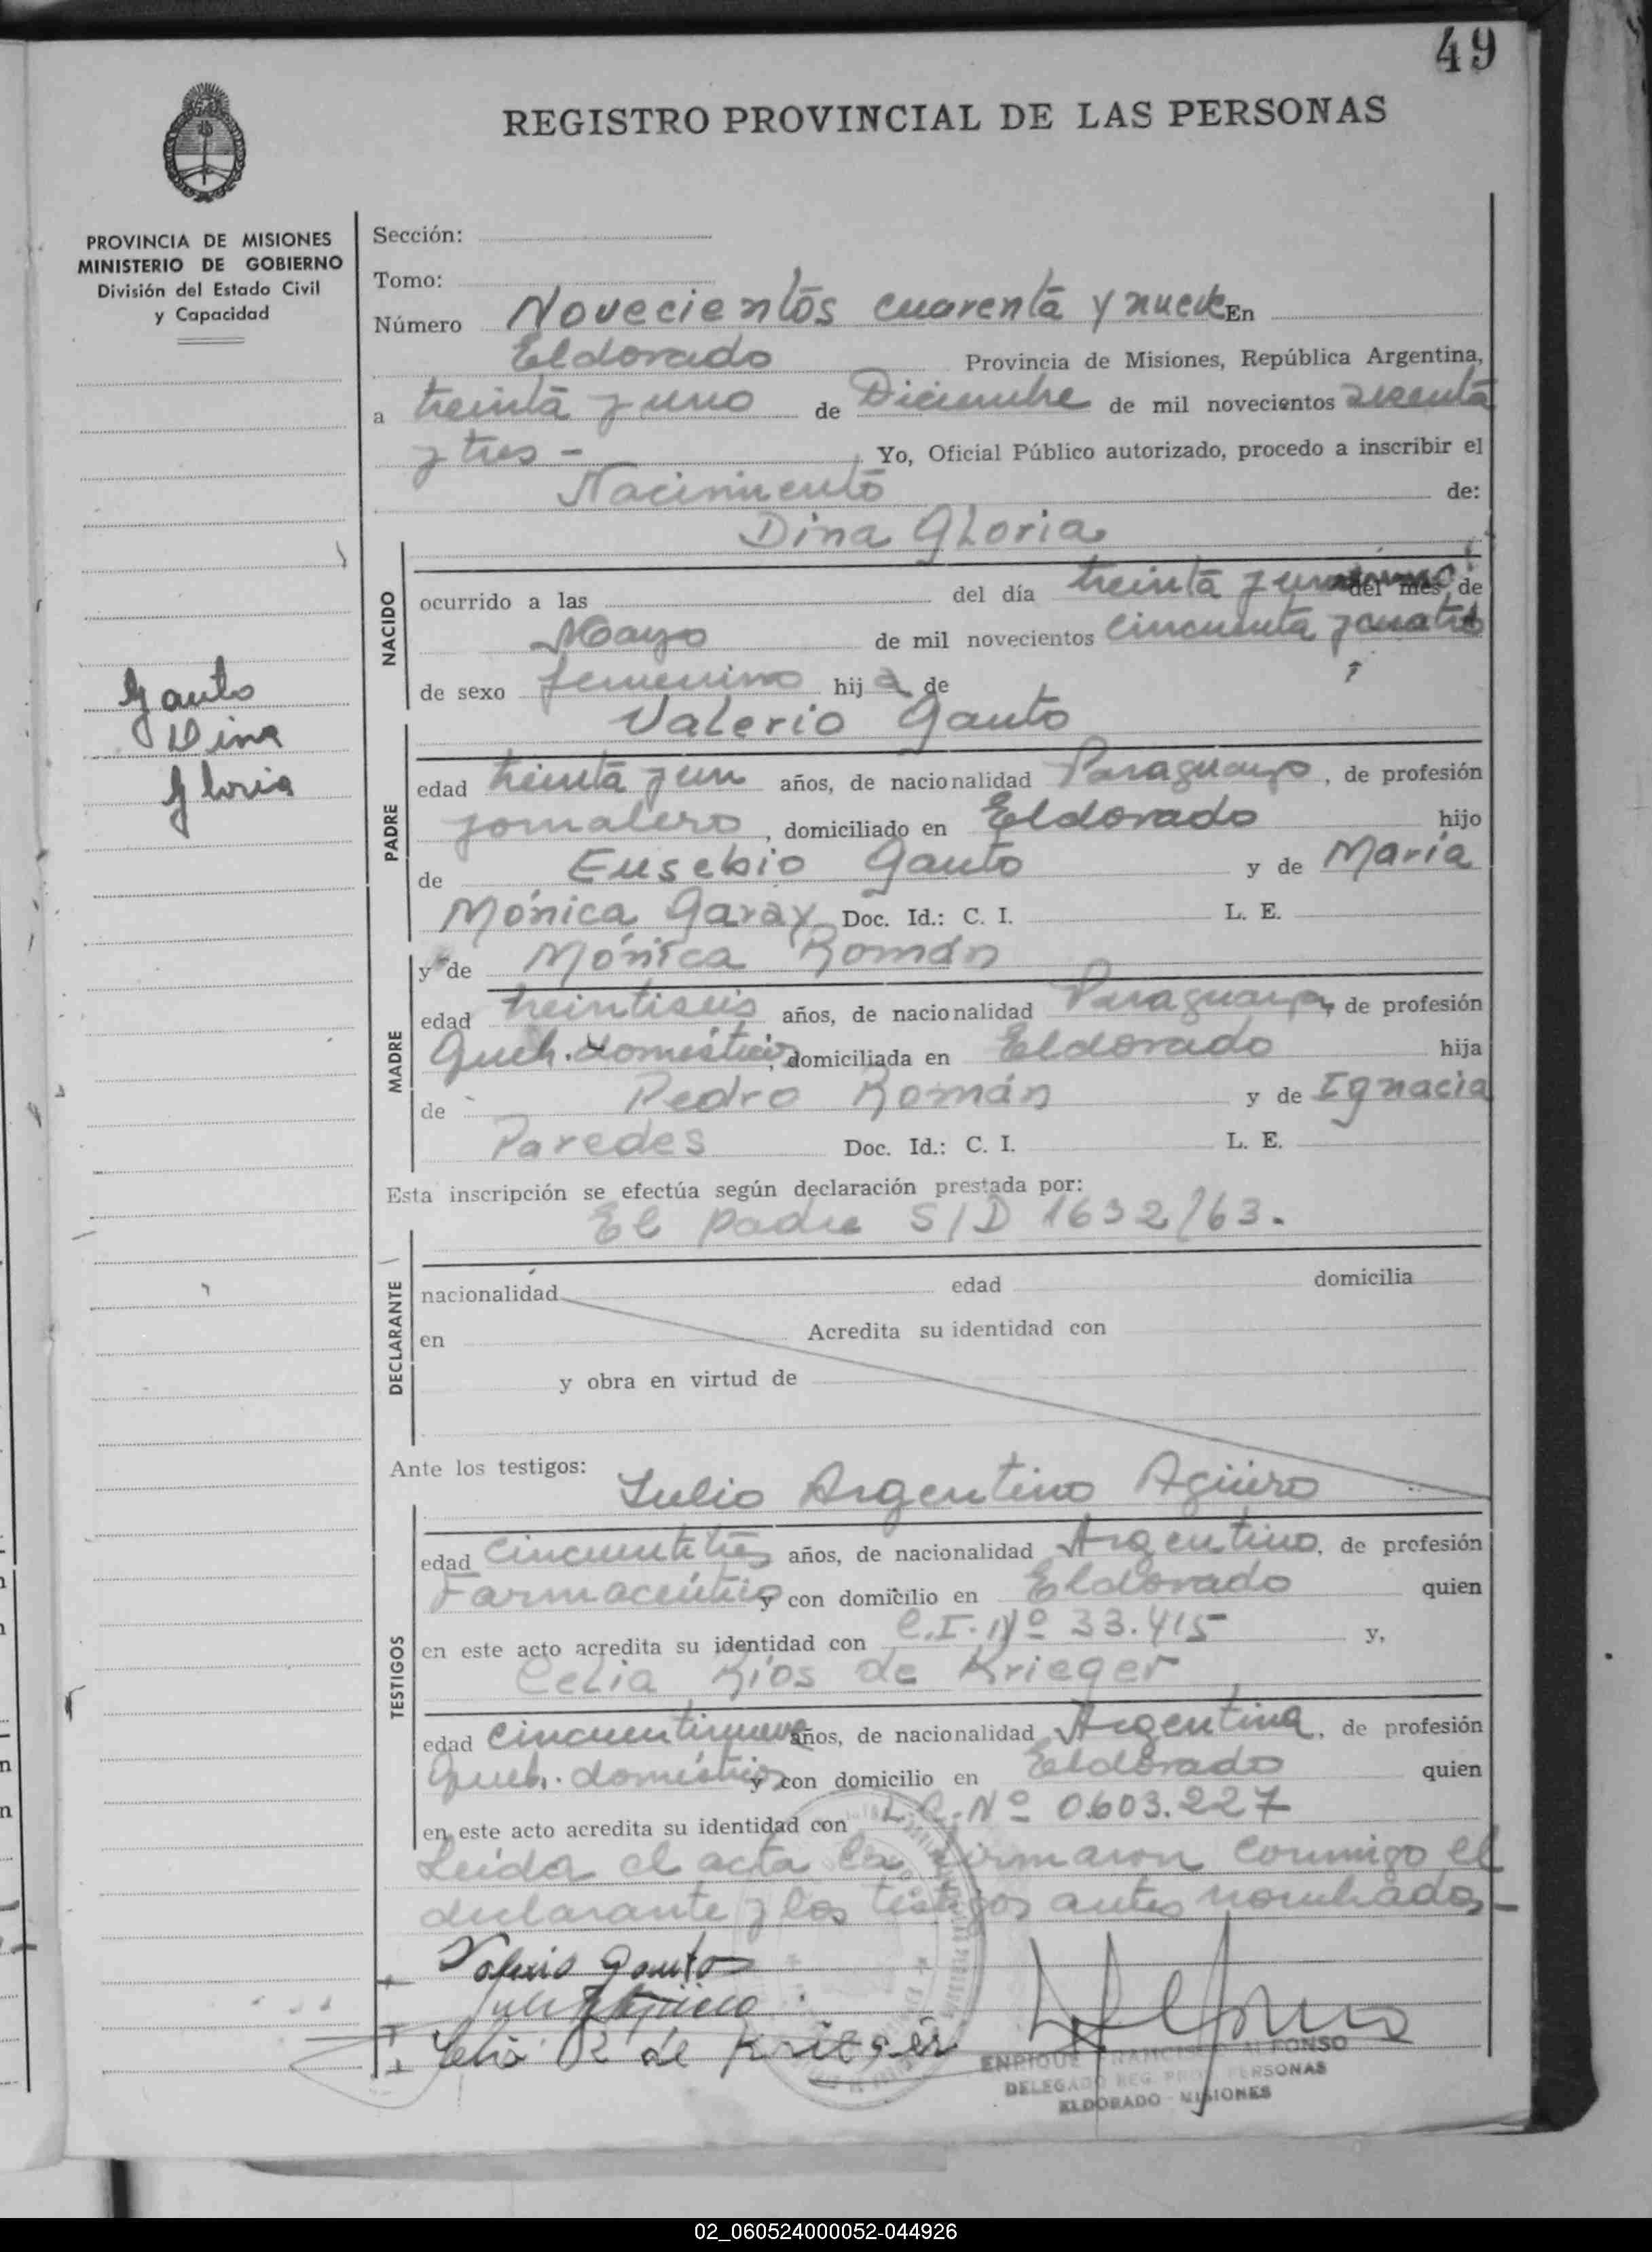 49
REGISTRO PROVINCIAL DE LAS PERSONAS
PROVINCIA DE MISIONES
MINISTERIO DE GOBIERNO
División del Estado Civil
y Capacidad
Sección:
Tomo:
Número Novecientos cuarenta y nueve En
Eldorado Provincia de Misiones, República Argentina,
a treinta y uno de Diciembre de mil novecientos sesenta
y tres - Yo, Oficial Público autorizado, procedo a inscribir el
Nacimiento de:
Dina Gloria
NACIDO
ocurrido a las del día treinta y uno del mes de
Mayo de mil novecientos cincuenta y cuatro
de sexo femenino hija de
Gauto
Dina
Gloria
Valerio Gauto
PADRE
edad treinta y un años, de nacionalidad Paraguayo, de profesión
jornalero, domiciliado en Eldorado hijo
de Eusebio Gauto y de María
Mónica Garay Doc. Id.: C. I. L. E.
y de Mónica Román
MADRE
edad treintiseis años, de nacionalidad Paraguaya, de profesión
Queh. domésticos, domiciliada en Eldorado hija
de Pedro Román y de Ignacia
Paredes Doc. Id.: C. I. L. E.
Esta inscripción se efectúa según declaración prestada por:
El padre S/D 1632/63.
DECLARANTE
nacionalidad edad domicilia
en Acredita su identidad con
y obra en virtud de
Ante los testigos:
Julio Argentino Agüero
TESTIGOS
edad cincuentitres años, de nacionalidad Argentino, de profesión
Farmacéutico y con domicilio en Eldorado quien
en este acto acredita su identidad con C.I. Nº 33.415 y,
Celia Ríos de Krieger
edad cincuentinueve años, de nacionalidad Argentina, de profesión
Queh. domésticos y con domicilio en Eldorado quien
en este acto acredita su identidad con L.C. Nº 0.603.227
Leida el acta la firmaron conmigo el
declarante y los testigos antes nombrados -
Valerio Gauto
Celia R de Krieger
ENRIQUE FRANCISCO ALFONSO
DELEGADO REG. PROV. PERSONAS
ELDORADO - MISIONES
02_060524000052-044926